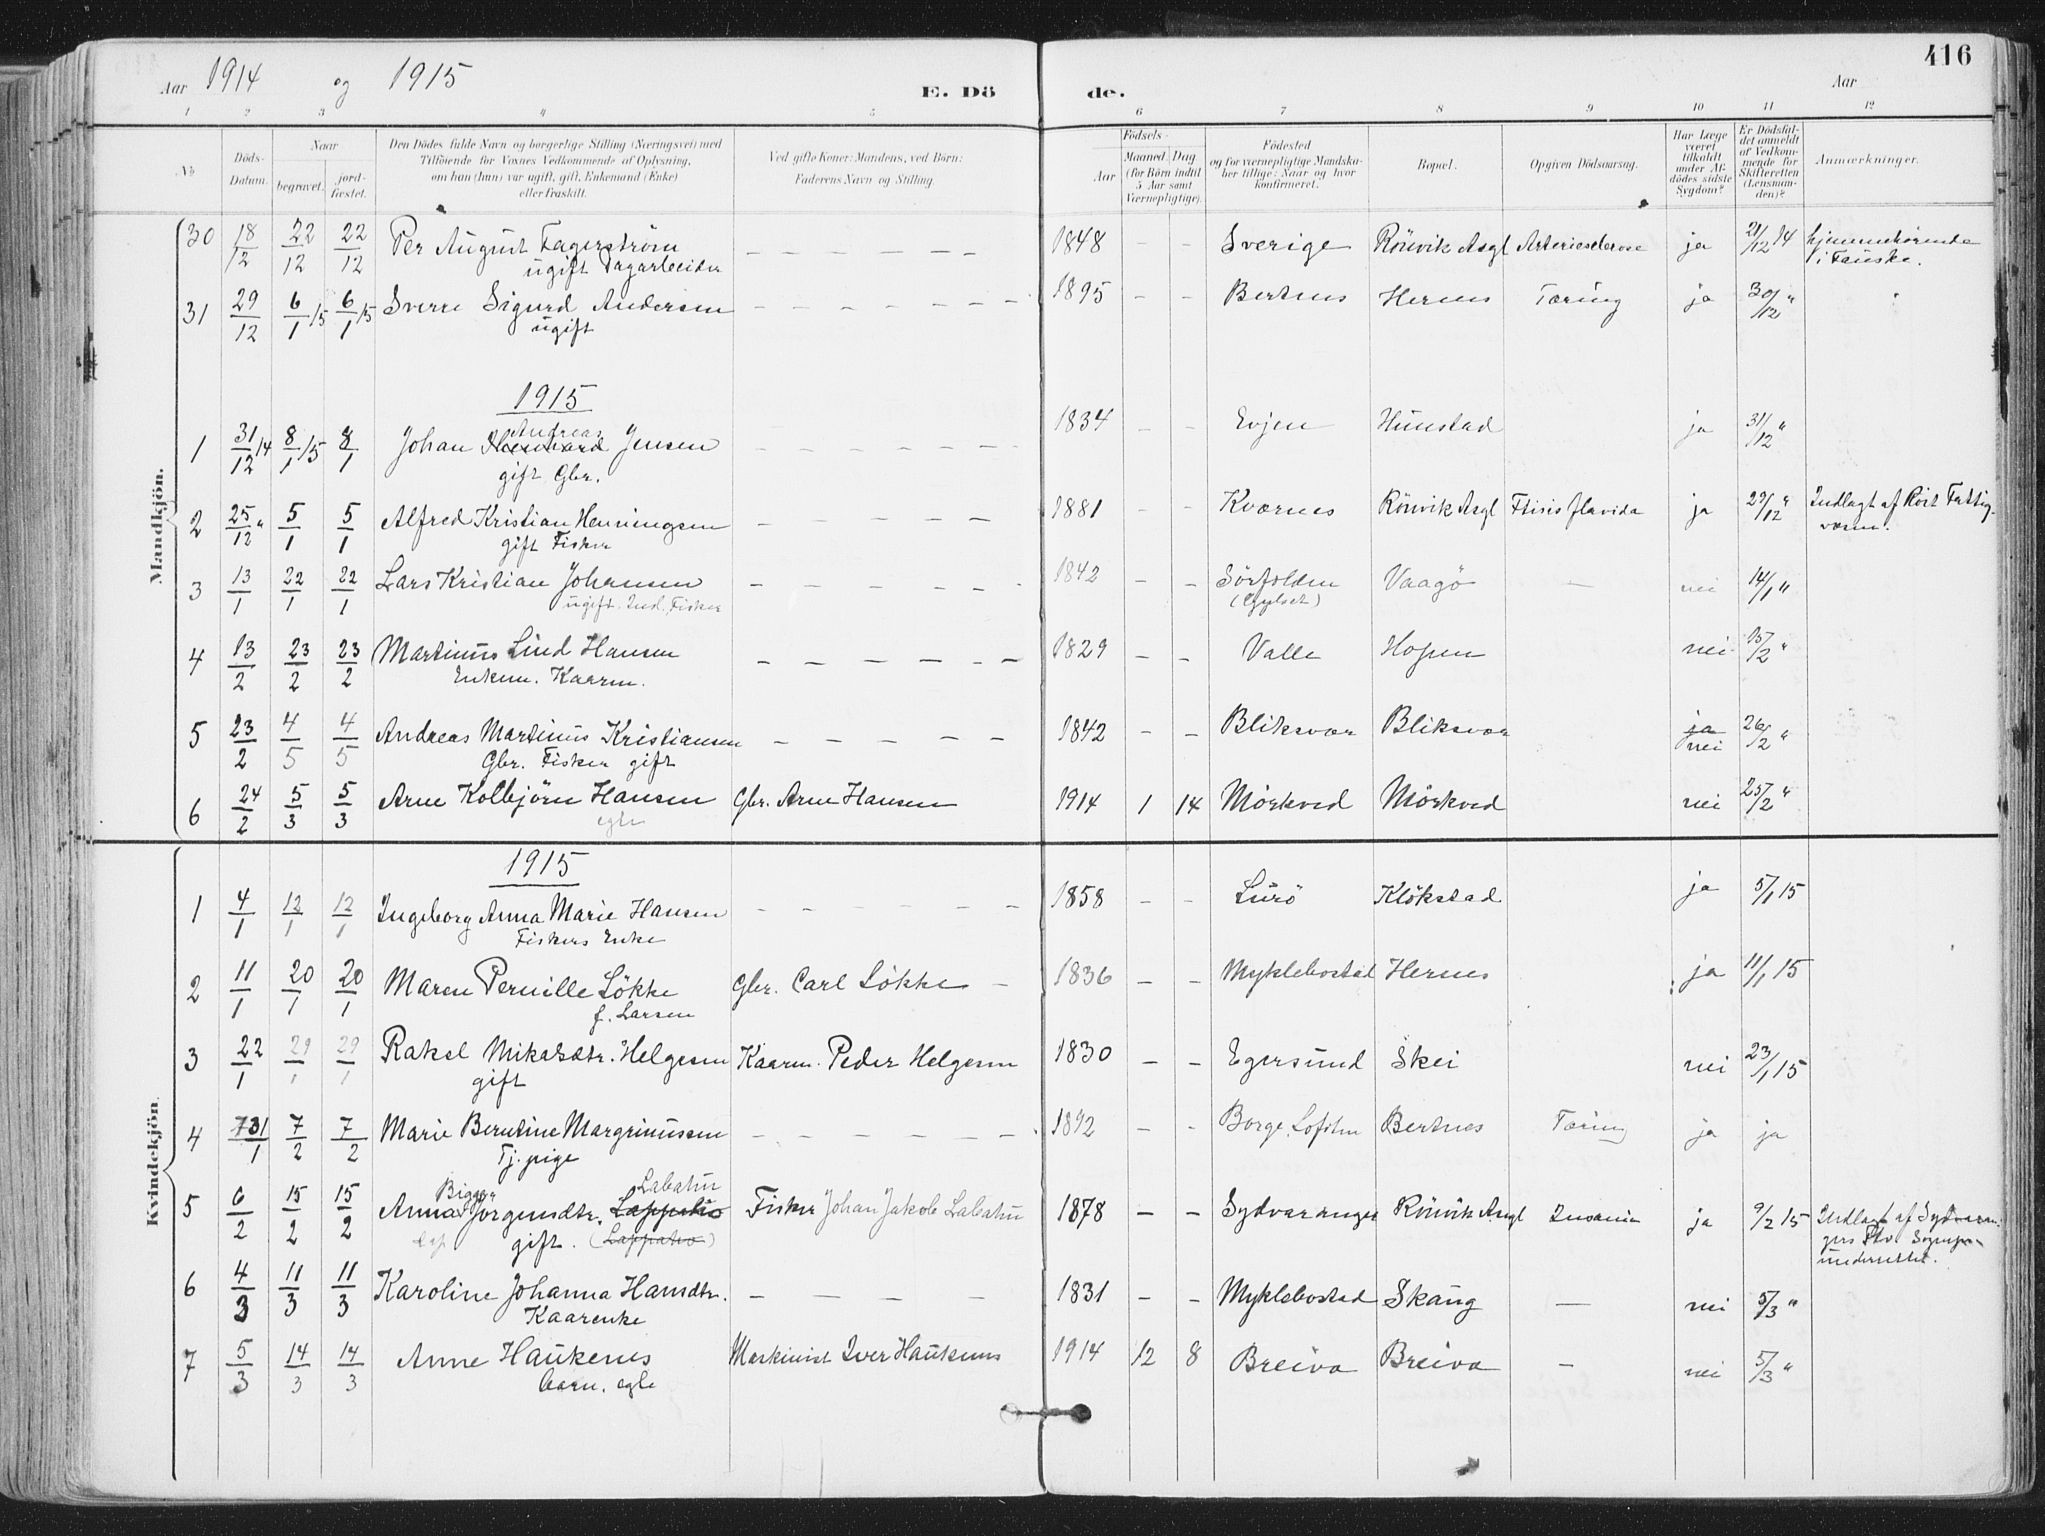 416
Aar 1914 og 1915 E. Dö de. Aar
1 2 3 4 5 6 7 8 9 10 11 12
№
Döds-
Datum.
Naar
begravet.
jord-
fæstet.
Den Dödes fulde Navn og borgerlige Stilling (Næringsvei) med
Tilföiende for Voxnes Vedkommende af Oplysning,
om han (hun) var ugift, gift, Enkemand (Enke)
eller fraskilt.
Ved gifte Koner: Mandens, ved Börn:
Faderens Navn og Stilling.
Födsels-
Aar
Maaned Dag
(for Börn indtil
5 Aar samt
Værnepligtige).
Födested
og for værnepligtige Mandska-
ber tillige: Naar og hvor
konfirmeret.
Bopæl.
Opgiven Dödsaarsag.
Har Læge
været
tilkaldt
under Af-
dödes sidste
Sygdom?
Er Dödsfal-
det anmeldt
af Vedkom-
mende for
Skifteretten
(Lensman-
den)?
Anmærkninger.
Mandkjön.
30 18/12 22/12 22/12 Per August Fagerström — — — — — — 1848 - - Sverige Rönvik Asyl Arteriesclerose ja 21/12 14 hjemmehörende
ugift Dagarbeider i Fauske.
31 29/12 6/1 15 6/1 15 Sverre Sigurd Andersen — — — — — — 1895 - - Bertnes Hernes Tæring ja 30/12 "
ugift
1915
Andreas
1 31/12 14 8/1 15 8/1 Johan Jensen — — — — — — 1834 - - Evjen Hunstad ja 31/12 "
gift Gbr.
2 25/12 " 5/1 5/1 Alfred Kristian Henningsen — — — — — 1881 - - Kværnes Rönvik Asyl Ftisis flavida ja 29/12 " Indlagt af Röst Fattig-
gift Fisker væsen.
3 13/1 22/1 22/1 Lars Kristian Johansen — — — — — 1842 - - Sörfolden Vaagö — nei 14/1 "
ugift. Ind. Fisker (Gyltset)
4 13/2 23/2 23/2 Martinus Lind Hansen — — — — — — 1829 - - Valle Hopen nei 15/2 "
Enkem. Kaarm.
5 23/2 4/5 4/5 Andreas Martinus Kristiansen — — — — — 1842 - - Bliksvær Bliksvær ja 26/2 "
Gbr. Fisker gift nei
6 24/2 5/3 5/3 Arne Kolbjörn Hansen Gbr. Arne Hansen 1914 1 14 Mörkved Mörkved nei 25/2 "
egte
Kvindekjön.
1915
1 4/1 12/1 12/1 Ingeborg Anna Marie Hansen — — — — — — 1858 - - Lurö Klökstad ja 5/1 15
Fiskers Enke
2 11/1 20/1 20/1 Maren Pernille Lökke Gbr. Carl Lökke — 1836 - - Myklebostad Hernes ja 11/1 15
f. Larsen
3 22/1 29/1 29/1 Rakel Mikalsdtr. Helgesen Kaarm. Peder Helgesen 1830 - - Egersund Skei nei 23/1 15
gift
4 31/1 7/2 7/2 Marie Berntine Margrinussen — — — — — — 1892 - - Borge, Lofoten Bertnes Tæring ja ja
Tj. pige
Bigga Labahu
5 6/2 15/2 15/2 Anna Jörgensdtr. Lappatio Fisker Johan Jakob Labahu 1878 - - Sydvaranger Rönvik Asyl Insania ja 9/2 15 Indlagt af Sydvaran-
lap gift. (Lappatio) gers Ftv.
underrettet.
6 4/3 11/3 11/3 Karoline Johanna Hansdtr. — — — — 1831 - - Myklebostad Skaug — nei 5/3 "
Kaarenke
7 5/3 14/3 14/3 Anne Haukenes Maskinist Iver Haukenes 1914 12 8 Breiva Breiva — nei 5/3 "
barn. egte